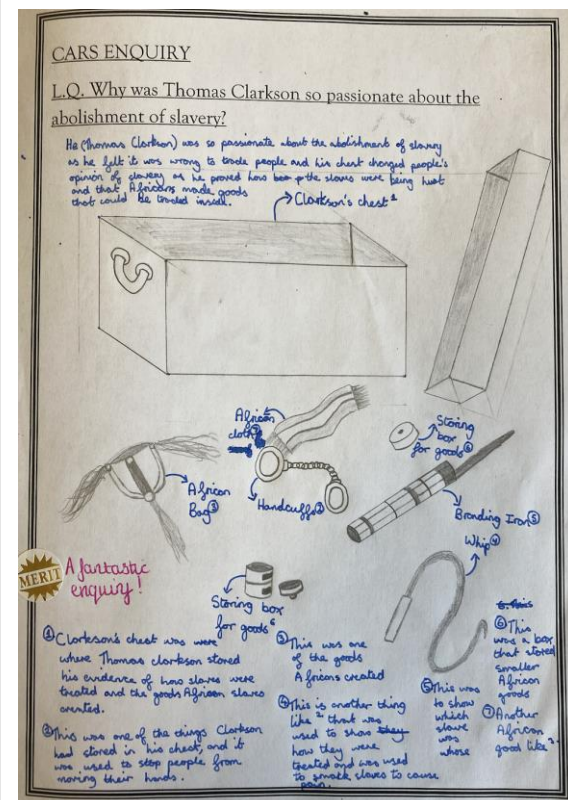 CARS ENQUIRY
L.Q. Why was Thomas Clarkson so passionate about the
abolishment of slavery?
He (Thomas Clarkson) was so passionate about the abolishment of slavery
as he felt it was wrong to trade people and his chest changed people's
opinion of slavery as he proved how the slaves were being hurt
and that Africans made goods
that could be traded instead.
Clarkson's chest 1
African
cloth 7
Storing
box
for goods 6
African
Bag 3
Handcuffs 2
Branding Iron 5
Whip 4
MERIT
A fantastic
enquiry!
Storing box
for goods 6
1 Clarkson's chest was were
where Thomas clarkson stored
his evidence of how slaves were
treated and the goods African slaves
created.
2 This was one of the things Clarkson
had stored in his chest, and it
was used to stop people from
moving their hands.
3 This was one
of the goods
Africans created
4 This is another thing
like 2 that was
used to show they
how they were
treated and was used
to smack slaves to cause
pain.
5 This was
to show
which
slave
was
whose
6 This
was a box
that stored
smaller
African
goods
7 Another
African
good like 3.